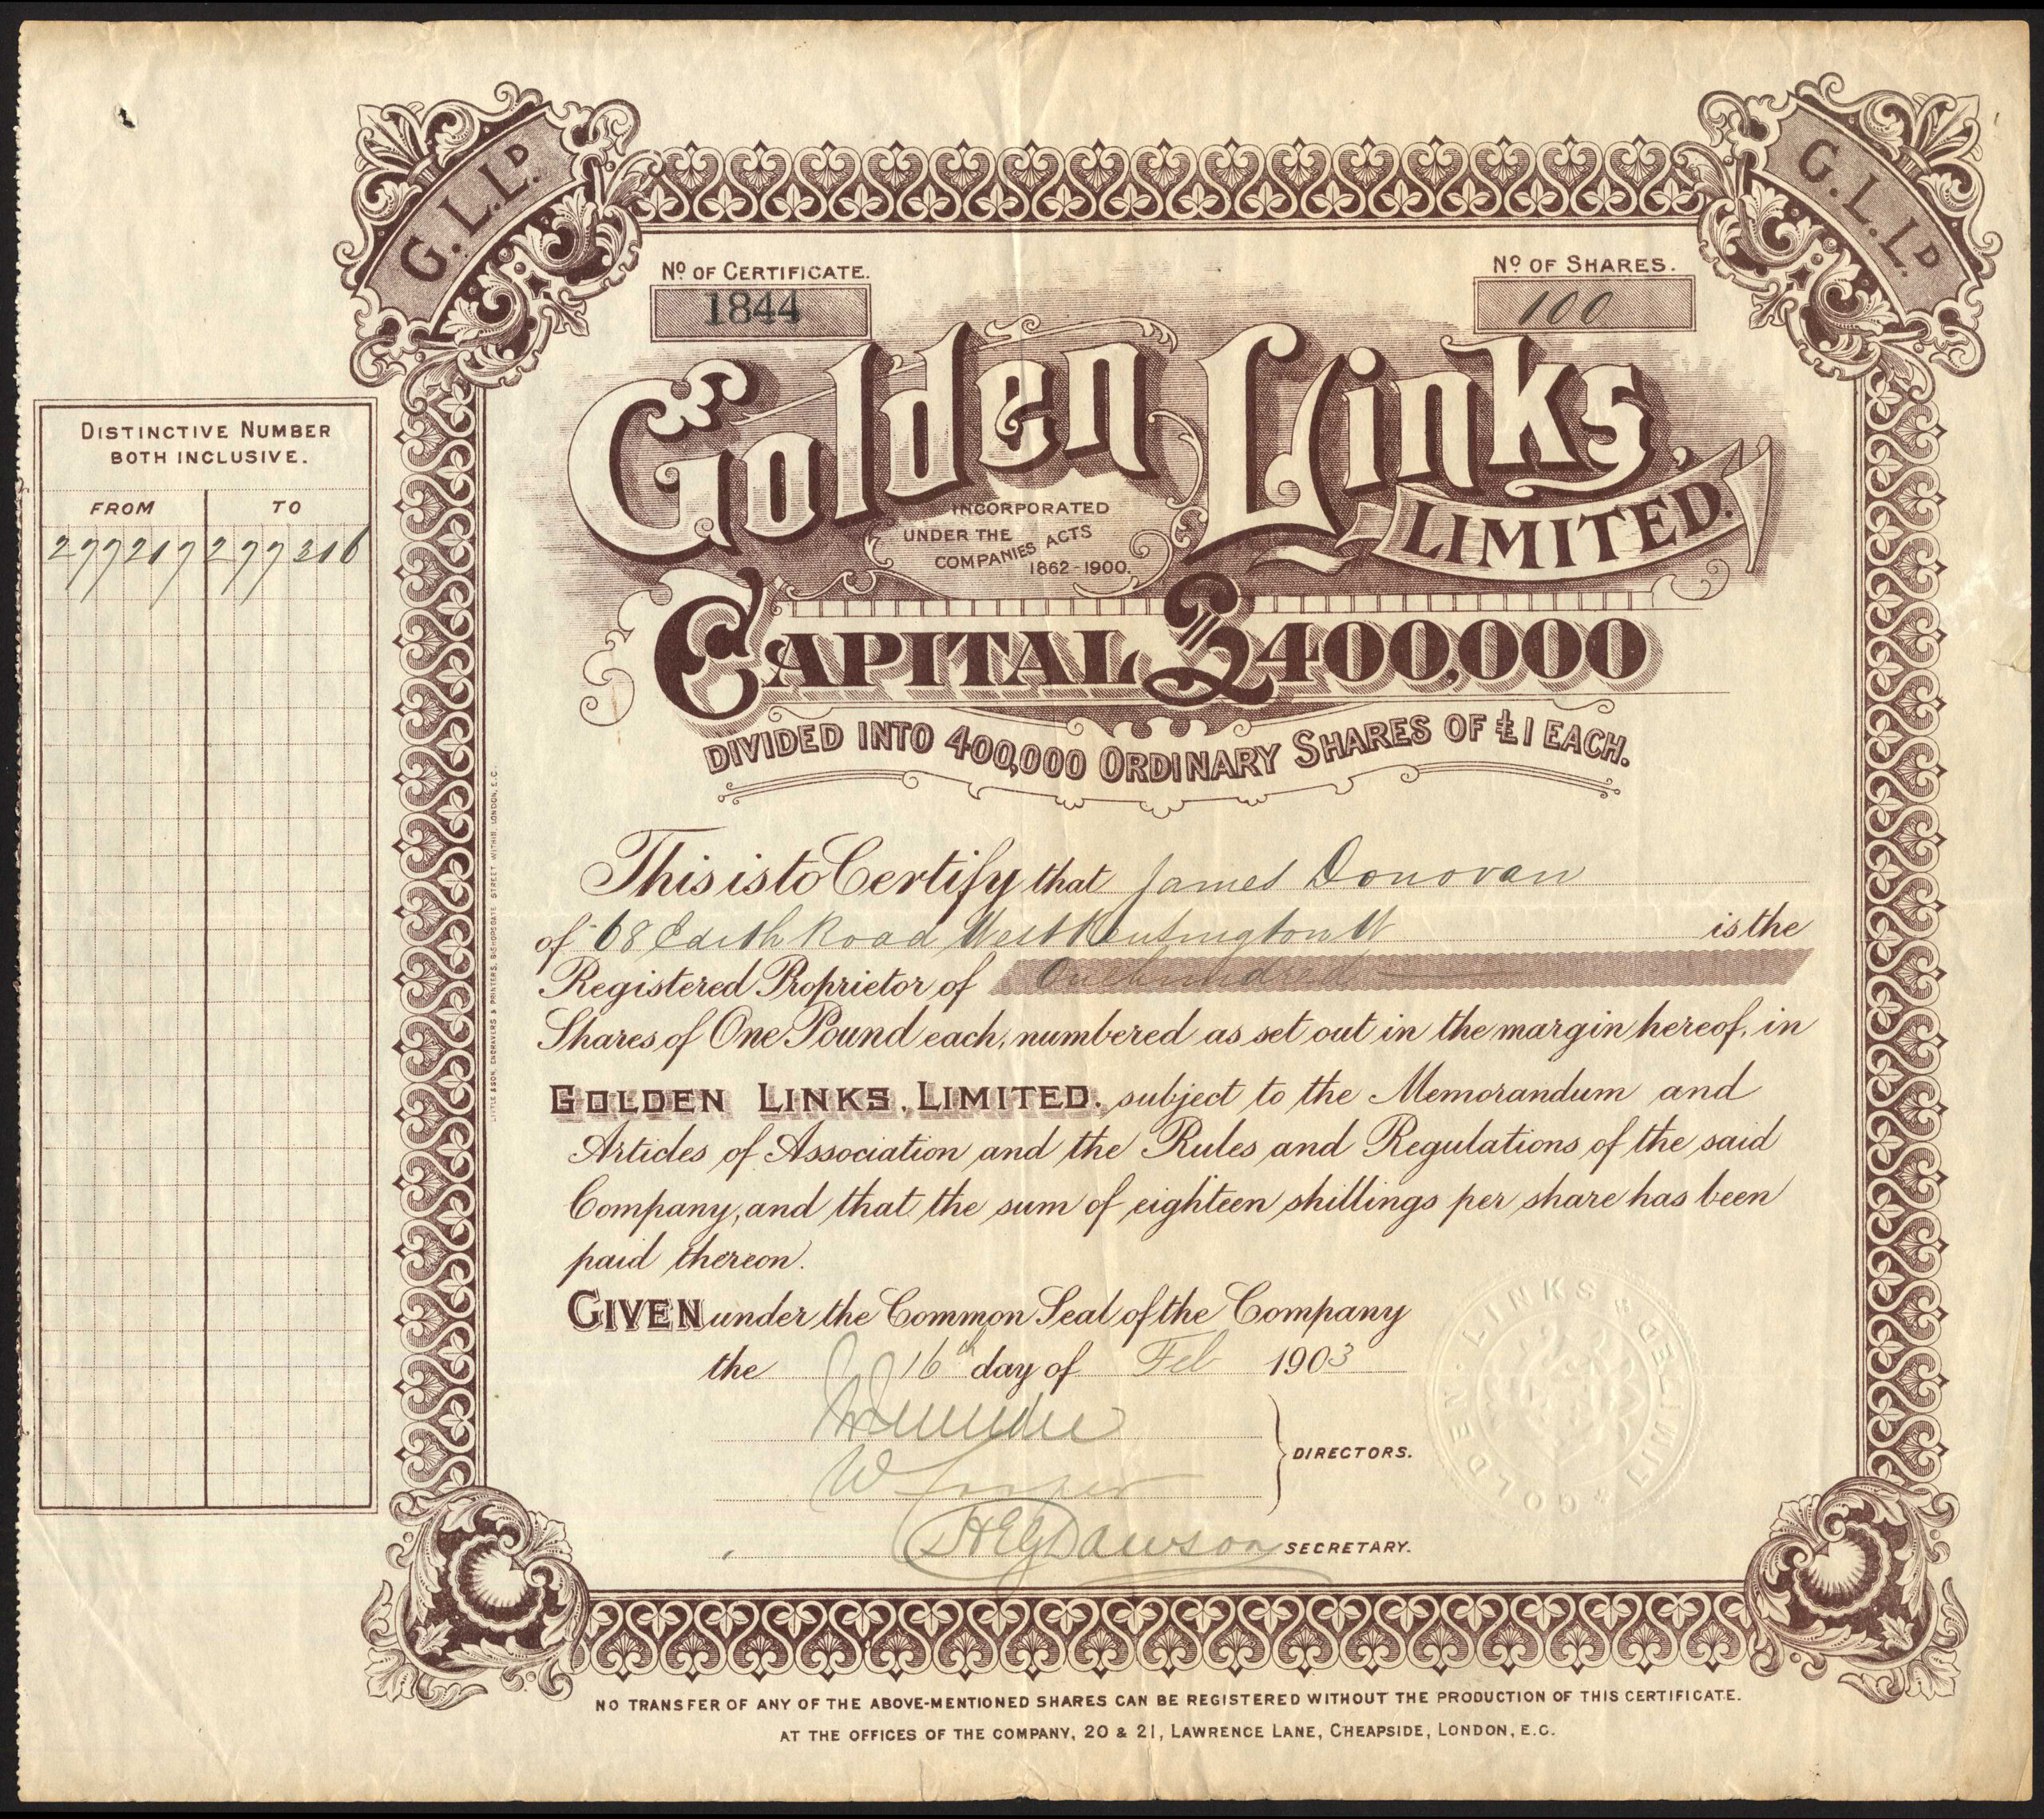 G.L.LD.
G.L.LD.
No OF CERTIFICATE.
1844
No OF SHARES.
100
Golden Links,
LIMITED.
INCORPORATED
UNDER THE
COMPANIES ACTS
1862-1900.
CAPITAL £400,000
DIVIDED INTO 400,000 ORDINARY SHARES OF £1 EACH.
DISTINCTIVE NUMBER
BOTH INCLUSIVE.
FROM TO
277217 277316
This is to Certify that James Donovan
of 68 Edith Road West Kensington W is the
Registered Proprietor of One hundred
Shares of One Pound each, numbered as set out in the margin hereof, in
GOLDEN LINKS, LIMITED. subject to the Memorandum and
Articles of Association and the Rules and Regulations of the said
Company, and that the sum of eighteen shillings per share has been
paid thereon.
GIVEN under the Common Seal of the Company
the 16th day of Feb 1903
DIRECTORS.
W
HEG Dawson SECRETARY.
GOLDEN LINKS LIMITED
LITTLE & SON, ENGRAVERS & PRINTERS, BISHOPSGATE STREET WITHIN, LONDON, E.C.
NO TRANSFER OF ANY OF THE ABOVE-MENTIONED SHARES CAN BE REGISTERED WITHOUT THE PRODUCTION OF THIS CERTIFICATE.
AT THE OFFICES OF THE COMPANY, 20 & 21, LAWRENCE LANE, CHEAPSIDE, LONDON, E.C.